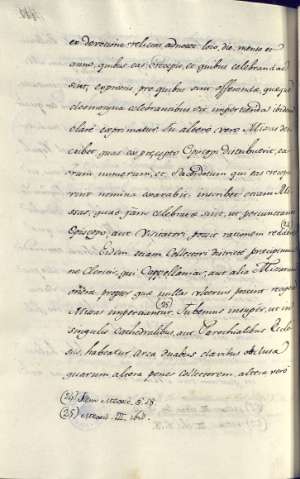 ex devotione relictas adnotet loco, die, mense et
anno, quibus eas recepit, et quibus celebrandae
sint, expensis pro quibus sint offerendae, quaeque
eleemosyna celebrantibus sit impertienda ibidem
clare exprimatur. In altero vero Missas des-
cribet, quas ex praecepto Episcopi distribuerit, ea-
rum numerum, et Sacerdotum qui eas recepe-
rint nomina exarabit, inscribet etiam Mis-
sas, quae jam celebratae sint, ut percunctanti
Episcopo, aut Visitatori possit rationem reddere (24)
Eidem etiam Collectori districte praecipimus
ne Clericis, qui Cappellaniae, aut alia Missarum
onera propter quae nullas ulterius possint recipere
Missas impertiantur. (25) Jubemus insuper, ut in
singulis Cathedralibus, aut Parochialibus Eccle-
siis, habeatur arca duabus clavibus obclusa
quarum altera penes collectorem, altera vero
(24) Idem Mexic. §. 18.
(25) Mexic. III. ibid.